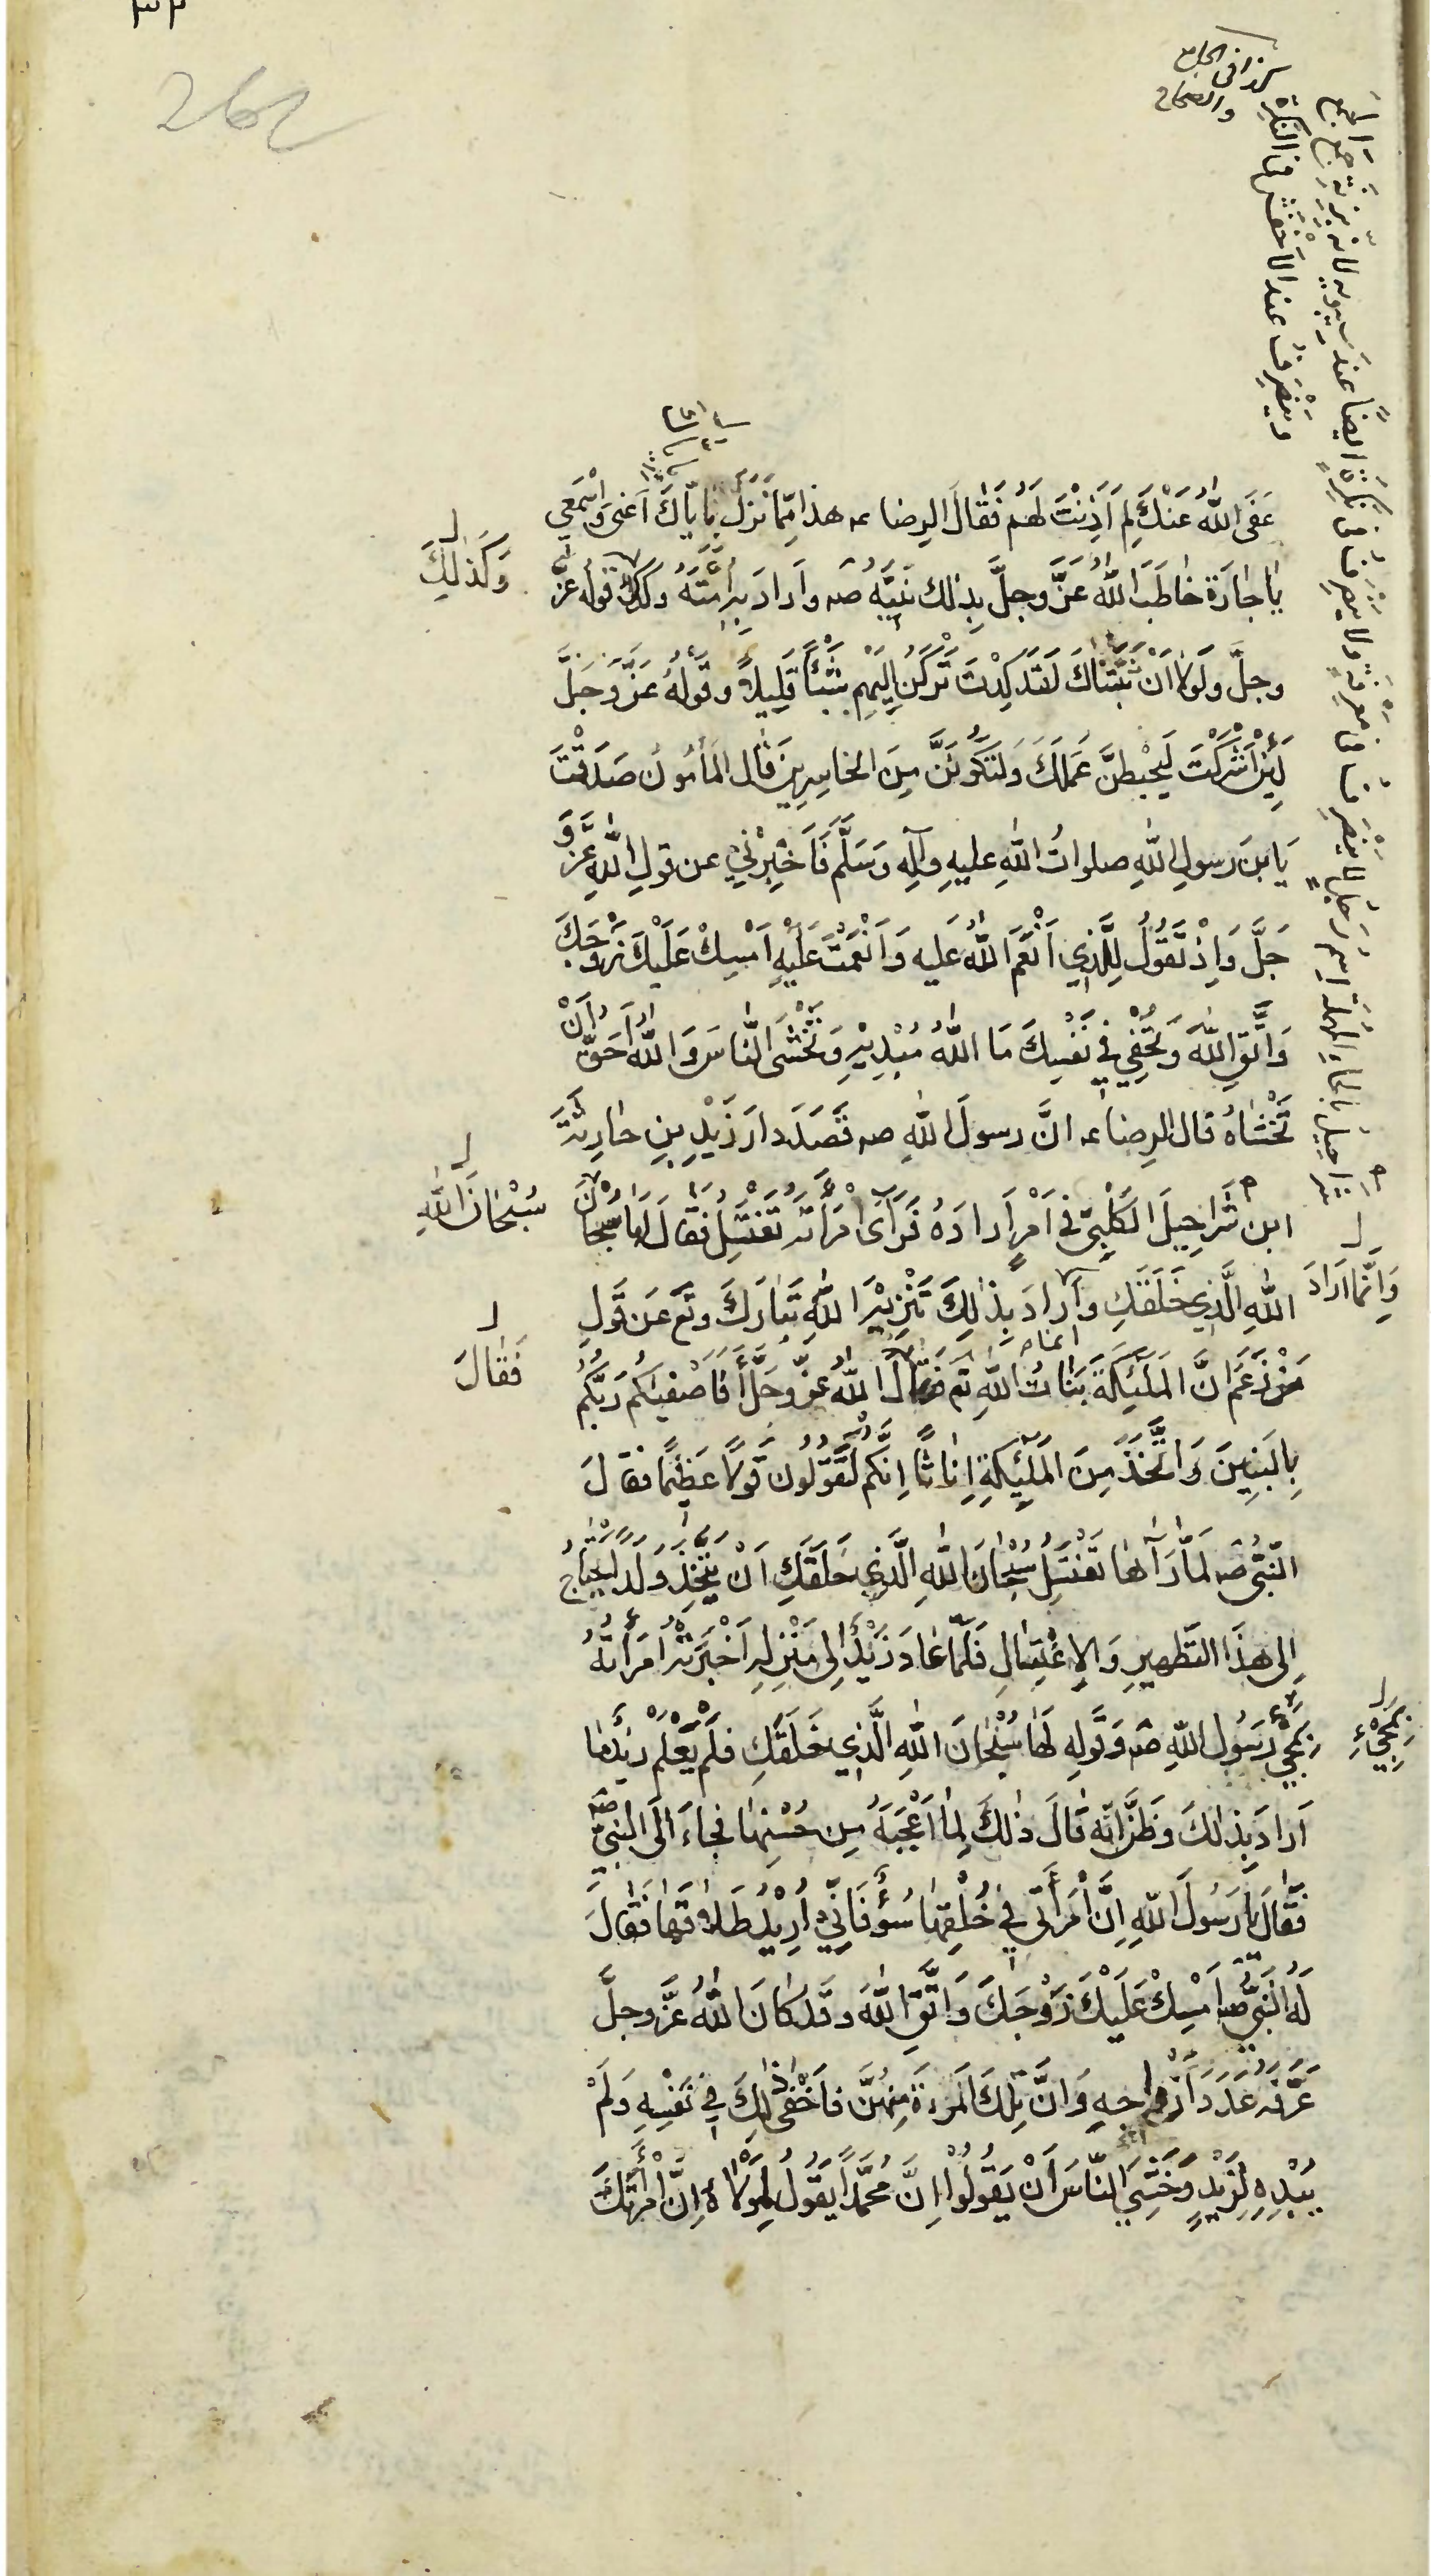 262
كذا في الجامع
والصحاح
شراحيل بالحاء المهملة اسم رجل لا ينصرف في معرفة ولا ينصرف في نكرة ايضا عند سيبويه لانه بزنة جمع الجمع
وينصرف عند الاخفش في النكرة
عَفَى اللّٰهُ عَنْكَ لِمَ اَذِنْتَ لَهُم فَقٰالَ الرِضا ع هذا مِمّا نَزَلَ بِاِيّاكَ اَعْنى وَاسْمَعي
يٰا جٰارَة خٰاطَبَ اللّٰهُ عَزَّ وجلَّ بِذٰلك نَبِيَّهُ ص واَرادَ بِهِ اُمَّتَهُ وكذلك قوله عزّ
وَكَذٰلِكَ
وجلَّ ولَولا اَنْ ثَبَّتْنٰاكَ لَقَد كِدْتَ تَرْكَنُ اِلَيْهِم شَيْئًا قَلِيلًا وقَولُهُ عَزَّ وَجَلَّ
لَئِنْ اَشْرَكْتَ لَيَحْبِطَنَّ عَمَلُكَ وَلَتَكُونَنَّ مِنَ الخاسِرِينَ قٰال المَأمُون صَدَقْتَ
يَا بنَ رسولِ اللّٰهِ صلواتُ اللّٰهِ عليهِ وآلِهِ وَسَلَّم فَاَخْبِرْني عن قولِ اللّٰهِ عَزَّ وَ
جَلَّ وَاِذْ تَقُولُ لِلَّذِي اَنْعَمَ اللّٰهُ عَليه وَاَنْعَمْتَ عَلَيْهِ اَمْسِكْ عَلَيْكَ زَوْجَكَ
وَاتَّقِ اللّٰهَ وَتُخْفِي فِي نَفْسِكَ مَا اللّٰهُ مُبْدِيْهِ وَتَخْشَى النّاسَ وَاللّٰهُ اَحَقُّ اَنْ
تَخْشٰاهُ قال الرِضا ع انَّ رسولَ اللّٰهِ ص قَصَدَ دارَ زَيْدِ بنِ حٰارِثَةَ
ابن شَراحِيلَ الكَلْبِيّ في اَمْرٍ اَرادَهُ فَرَآى امْرَأَتَهُ تَغْتَسِلُ فَقٰالَ لَهٰا سُبْحٰانَ
سُبْحٰانَ اللّٰهِ
اللّٰهِ الَّذِي خَلَقَكِ وَاَرادَ بِذٰلِكَ تَنْزِيْهَ اللّٰهِ تَبٰارَكَ وتَع عَن قَولِ
وَاِنَّمٰا اَرادَ
مَنْ زَعَمَ انَّ المَلٰئِكَةَ بَنٰاتُ اللّٰهِ تَع فَقٰالَ اللّٰهُ عزَّ وجَلَّ أَفَاَصْفيٰكُم رَبُّكُم
فَقٰالَ
بِالبَنِينَ وَاتَّخَذَ مِنَ المَلٰئِكَةِ اِنٰاثًا اِنَّكُم لَتَقُولُون قَولًا عَظِيْمًا فقالَ
النَبِيُّ ص لَمّٰا رَآهٰا تَغْتَسِلُ سُبْحٰانَ اللّٰهِ الَّذِي خَلَقَكِ اَنْ يَتَّخِذَ وَلَدًا يَحْتٰاجُ
اِلى هٰذَا التَطْهِيرِ وَالاِغْتِسٰالِ فَلَمّٰا عٰادَ زَيْدٌ اِلى مَنْزِلِهِ اَخْبَرَتْهُ امْرَأَتُهُ
بِمَجْيءِ رَسُول اللّٰهِ ص وَقَولِهِ لَهٰا سُبْحٰانَ اللّٰهِ الَّذِي خَلَقَكِ فلَمْ يَعْلَمْ زيدٌ مٰا
بِمَجْيءِ
اَرادَ بِذٰلكَ وظَنَّ انّهُ قٰالَ ذٰلكَ لِمٰا اَعْجَبَهُ مِن حُسْنِهٰا فجٰاءَ الى النبيّ ص
فَقٰالَ يٰا رَسُولَ اللّٰهِ اِنَّ امْرَأَتى فِي خُلْقِهٰا سُوْءٌ فَاِنّي اُرِيْدُ طَلاقَهٰا فَقٰالَ
لَهُ النَبِيُّ ص اَمْسِكْ عَلَيْكَ زَوْجَكَ وَاتَّقِ اللّٰهَ وقَد كٰانَ اللّٰهُ عَزَّ وجلَّ
عَرَّفَهُ عَدَدَ اَزْواجِهِ وَانَّ تِلْكَ المَرْءَةَ مِنهُنَّ فاَخْفى ذٰلِكَ في نَفْسِهِ وَلَمْ
يُبْدِهِ لِزَيْدٍ وَخَشِيَ النّاسَ اَنْ يَقُولُوْا اِنَّ مُحَمَّدًا يَقُولُ لِمَوْلاهُ اِنَّ امْرَأَتَكَ